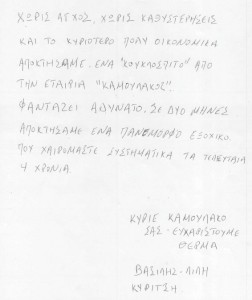 ΧΩΡΙΣ ΑΓΧΟΣ, ΧΩΡΙΣ ΚΑΘΥΣΤΕΡΗΣΕΙΣ
ΚΑΙ ΤΟ ΚΥΡΙΟΤΕΡΟ ΠΟΛΥ ΟΙΚΟΝΟΜΙΚΑ
ΑΠΟΚΤΗΣΑΜΕ ΕΝΑ "ΚΟΥΚΛΟΣΠΙΤΟ" ΑΠΟ
ΤΗΝ ΕΤΑΙΡΙΑ "ΚΑΜΟΥΛΑΚΟΣ".
ΦΑΝΤΑΖΕΙ ΑΔΥΝΑΤΟ. ΣΕ ΔΥΟ ΜΗΝΕΣ
ΑΠΟΚΤΗΣΑΜΕ ΕΝΑ ΠΑΝΕΜΟΡΦΟ ΕΞΟΧΙΚΟ
ΠΟΥ ΧΑΙΡΟΜΑΣΤΕ ΣΥΣΤΗΜΑΤΙΚΑ ΤΑ ΤΕΛΕΥΤΑΙΑ
4 ΧΡΟΝΙΑ
ΚΥΡΙΕ ΚΑΜΟΥΛΑΚΟ
ΣΑΣ ΕΥΧΑΡΙΣΤΟΥΜΕ
ΘΕΡΜΑ
ΒΑΣΙΛΗΣ-ΛΙΛΗ
ΚΥΡΙΤΣΗ